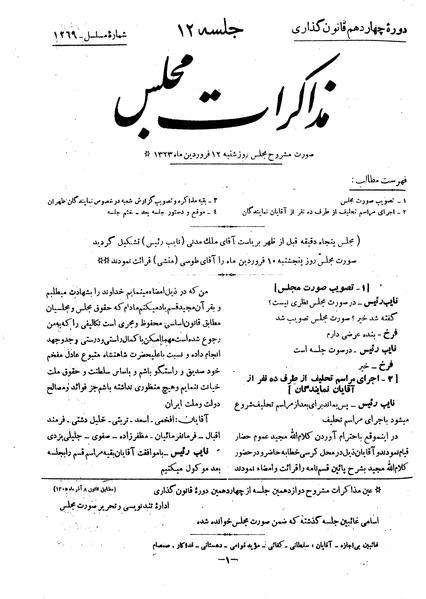 دورهٔ چهاردهم قانون گذاری
جلسه ۱۲
شمارهٔ مسلسل - ۱۲۶۹
مذاکرات مجلس
صورت مشروح مجلس روز شنبه ۱۲ فروردین ماه ۱۳۲۳ ※
فهرست مطالب:
۱ - تصویب صورت مجلس
۲ - اجرای مراسم تحلیف از طرف ده نفر از آقایان نمایندگان
۳ - بقیه مذاکره و تصویب گزارش شعبه در خصوص نمایندگان طهران
۴ - موقع و دستور جلسه بعد - ختم جلسه
( مجلس پنجاه دقیقه قبل از ظهر بریاست آقای ملک مدنی (نایب رئیس) تشکیل گردید
صورت مجلس روز پنجشنبه ۱۰ فروردین ماه را آقای طوسی (منشی) قرائت نمودند ※
[ ۱ - تصویب صورت مجلس ]
نایب رئیس - در صورت مجلس نظری نیست؟
گفته شد خیر؟ صورت مجلس تصویب شد
فرخ - بنده عرضی دارم
نایب رئیس - در صورت جلسه است
فرخ - خیر
[ ۲ - اجرای مراسم تحلیف از طرف ده نفر از
آقایان نمایندگان ]
نایب رئیس - پس بماند برای بعد از مراسم تحلیف شروع
میشود باجرای مراسم تحلیف.
در اینموقع با احترام آوردن کلام‌الله مجید عموم حضار
قیام نمودند و آقایان ذیل در محل کرسی خطابه حاضر و در حضور
کلام‌الله مجید بشرح پائین قسم نامه را قرائت و امضاء نمودند
من که در ذیل امضاء مینمایم خداوند را بشهادت میطلبم
و بقرآن مجید قسم یاد میکنم مادام که حقوق مجلس و مجلسیان
مطابق قانون اساسی محفوظ و مجری است تکالیفی را که بمن
رجوع شده است مهما امکن با کمال راستی و درستی و جد و جهد
انجام داده و نسبت باعلیحضرت شاهنشاه متبوع عادل مفخم
خود صدیق و راستگو باشم و باساس سلطنت و حقوق ملت
خیانت ننمایم و هیچ منظوری نداشته باشم جز فوائد و مصالح
دولت و ملت ایران
آقایان: افخمی - اسعد - تربتی - خلیل دشتی - فرمند
اقبال - فرمانفرمائیان - مظفرزاده - صفوی - جلیلی یزدی
نایب رئیس - با موافقت آقایان بقیه مراسم قسم را بجلسه
بعد موکول میکنیم
※ عین مذاکرات مشروح دوازدهمین جلسه از چهاردهمین دورهٔ قانون گذاری
(مطابق قانون ۸ آذر ماه ۱۳۰۵)
ادارهٔ تندنویسی و تحریر صورت مجلس
اسامی غائبین جلسه گذشته که ضمن صورت مجلس خوانده شده
غائبین بی‌اجازه - آقایان: سلطانی - کفائی - مؤید قوامی - دهستانی - فداکار - صمصام
-۱-